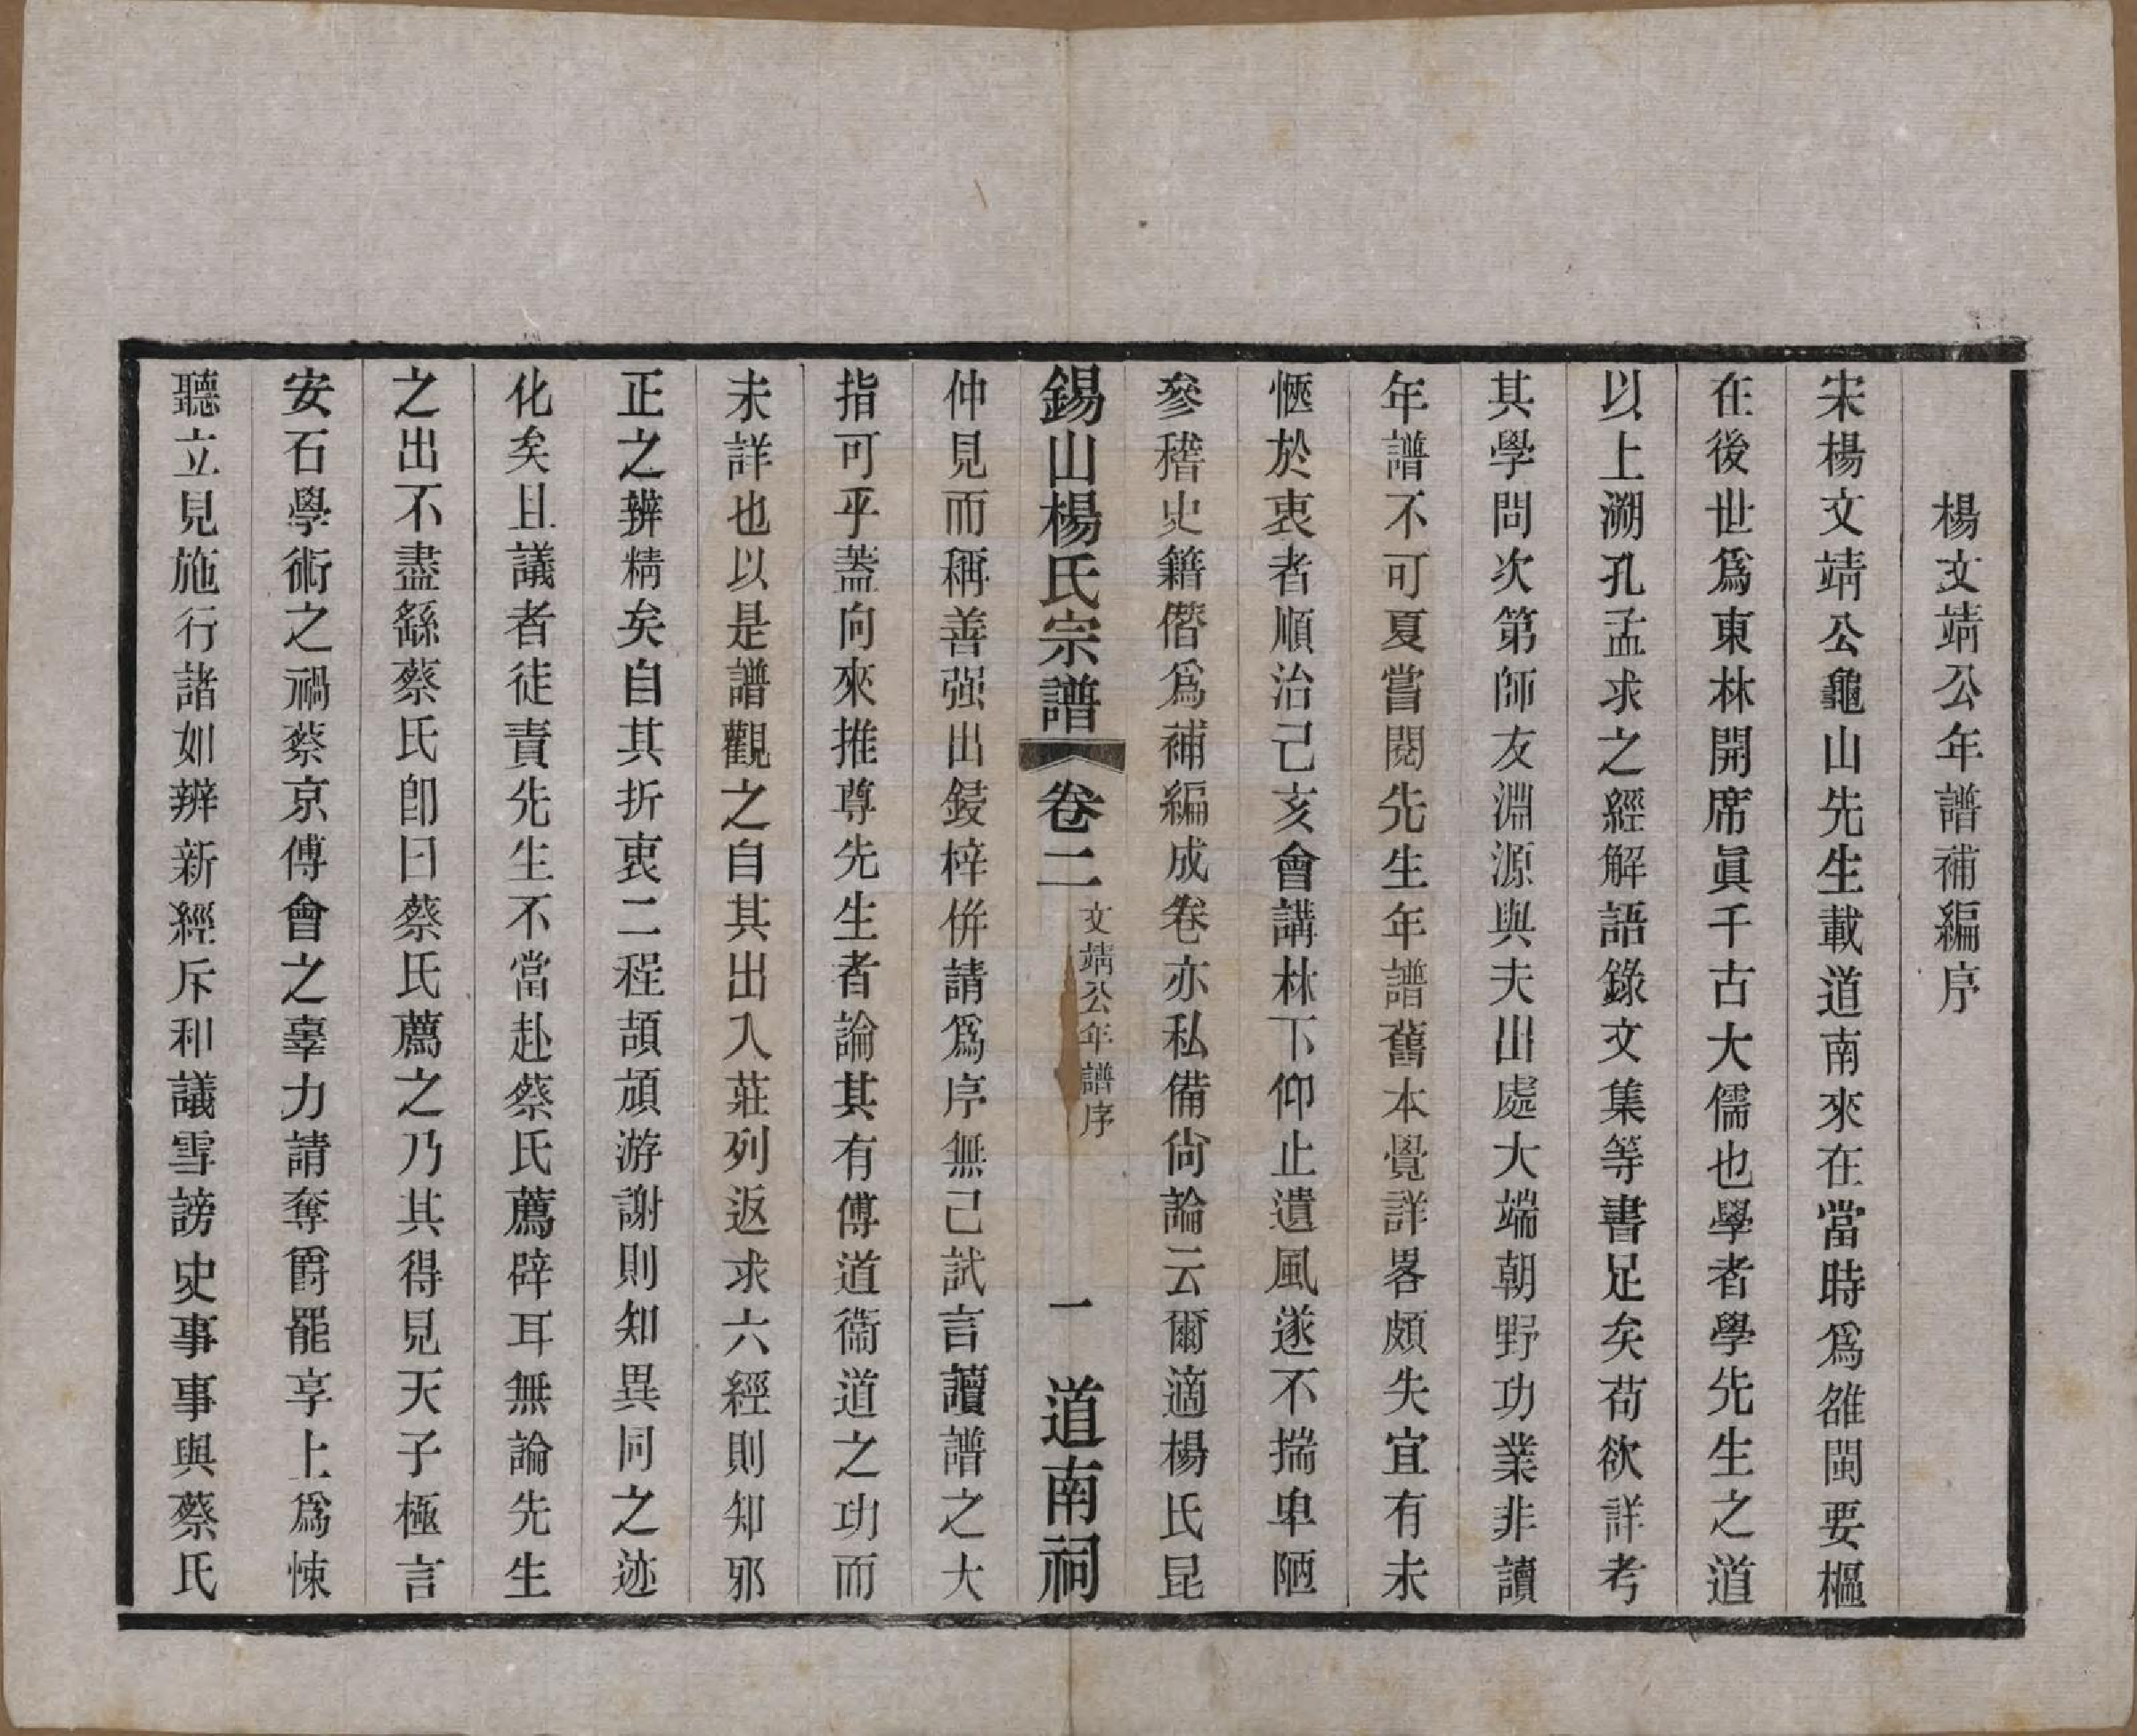 楊文靖公年譜補編序
宋楊文靖公龜山先生載道南來在當時爲雒閩要樞
在後世爲東林開席眞千古大儒也學者學先生之道
以上溯孔孟求之經解語錄文集等書足矣苟欲詳考
其學問次第師友淵源與夫出處大端朝野功業非讀
年譜不可夏嘗閱先生年譜舊本覺詳畧頗失宜有未
愜於衷者順治己亥會講林下仰止遺風遂不揣卑陋
參稽史籍僭爲補編成卷亦私備尙論云爾適楊氏昆
錫山楊氏宗譜 卷二 文靖公年譜序 一 道南祠
仲見而稱善强出鋟梓併請爲序無己試言讀譜之大
指可乎蓋向來推尊先生者論其有傳道衞道之功而
未詳也以是譜觀之自其出入莊列返求六經則知邪
正之辨精矣自其折衷二程頡頏游謝則知異同之迹
化矣且議者徒責先生不當赴蔡氏薦辟耳無論先生
之出不盡繇蔡氏卽曰蔡氏薦之乃其得見天子極言
安石學術之禍蔡京傅會之辜力請奪爵罷享上爲悚
聽立見施行諸如辨新經斥和議雪謗史事事與蔡氏